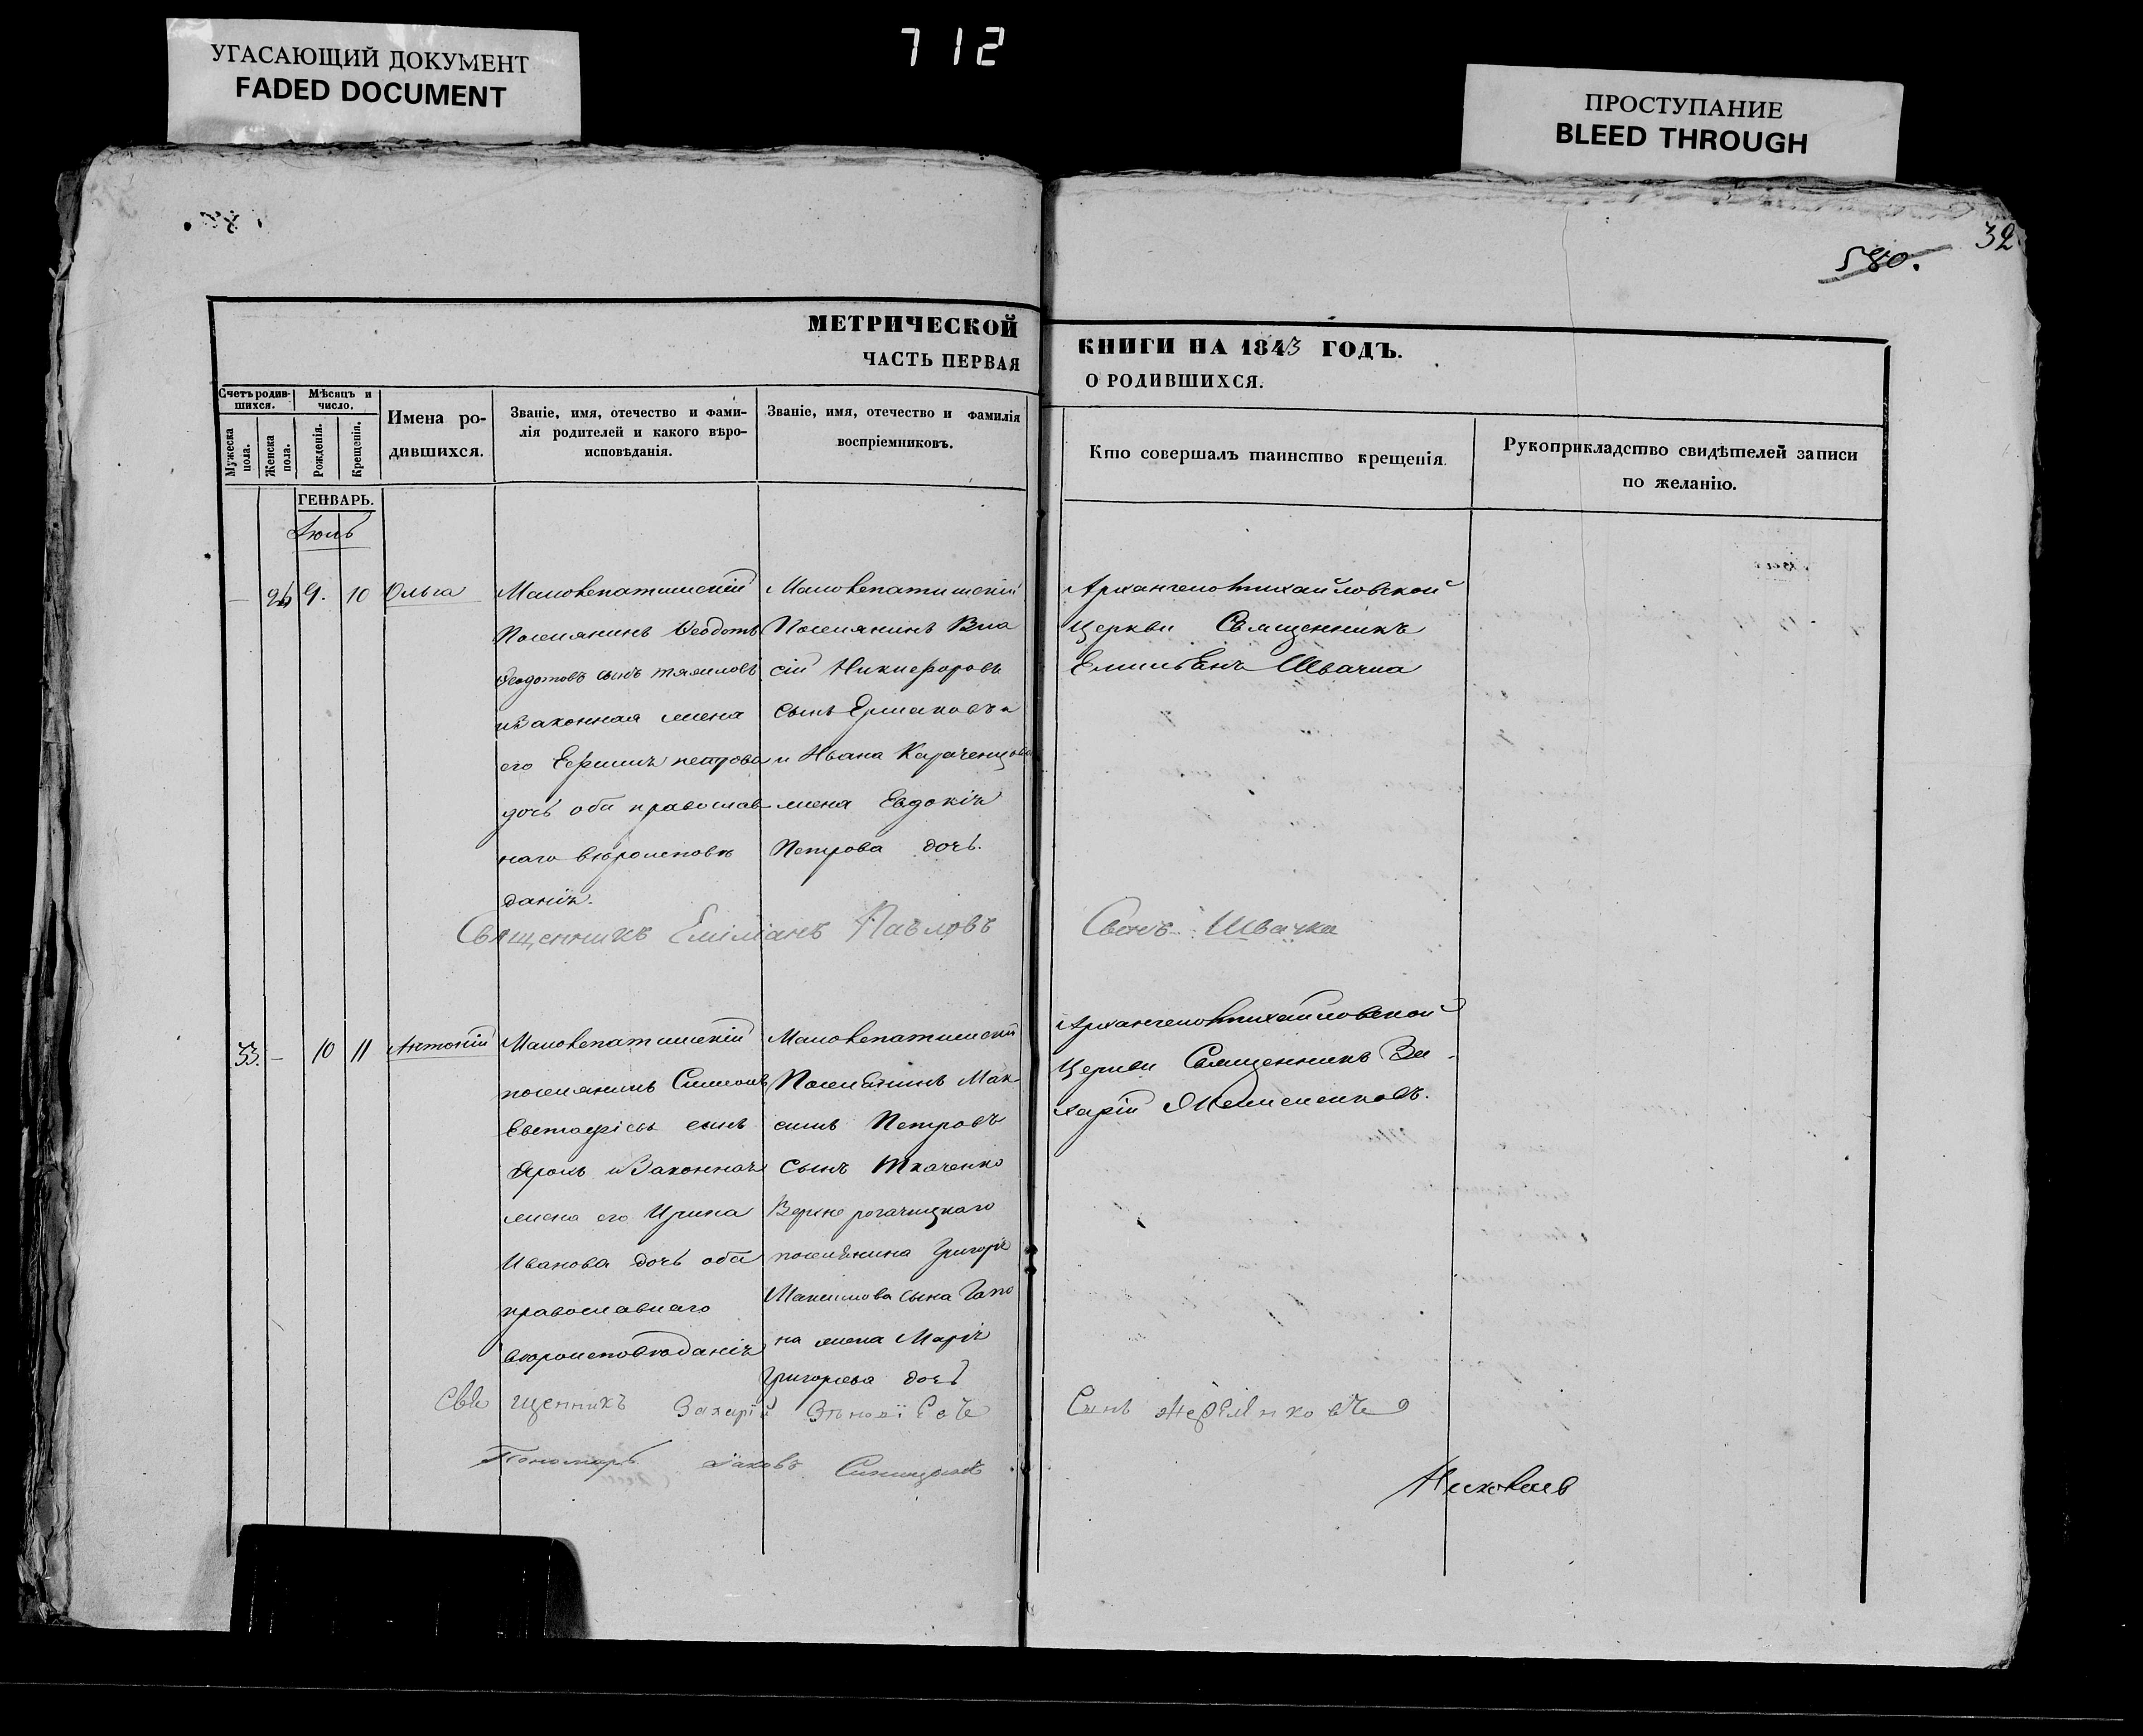 УГАСАЮЩИЙ ДОКУМЕНТ
FADED DOCUMENT
712
ПРОСТУПАНИЕ
BLEED THROUGH
32
580.
МЕТРИЧЕСКОЙ
ЧАСТЬ ПЕРВАЯ
КНИГИ НА 1843 ГОДЪ.
О РОДИВШИХСЯ.
Счетъ родив-
шихся.
Мужеска
пола.
Женска
пола.
Мѣсяцъ и
число.
Рожденія.
Крещенія.
Имена ро-
дившихся.
Званіе, имя, отечество и фами-
лія родителей и какого вѣро-
исповѣданія.
Званіе, имя, отечество и фамилія
воспріемниковъ.
Кто совершалъ таинство крещенія.
Рукоприкладство свидѣтелей записи
по желанію.
ГЕНВАРЬ.
Іюль
— 26 9. 10 Ольга
Малолепатишскій
Поселянинъ Ѳеодотъ
Ѳеодотовъ сынъ
и законная жена
его Петрова
дочь оба православ
наго вѣроисповѣ
данія.
Малолепатишскій
Поселянинъ Вла
сій Никифоровъ
сынъ Ермаковъ
и Ивана Караченцова
жена Евдокія
Петрова дочь.
Архангеломихайловской
Церкви Священникъ
Емиліанъ Швачка
Священникъ Еміліанъ Павловъ Сынъ Швачка
33. — 10 11 Антоній
Малолепатишскій
поселянинъ Симеонъ
Евстафіевъ сынъ
и законная
жена его Ирина
Иванова дочь оба
православнаго
вѣроисповѣданія
Малолепатишскій
Поселянинъ Мак
симъ Петровъ
сынъ Ткаченко
Верхнерогачицкаго
поселянина Григорія
Максимова сына Гапо
на жена Марія
Григорьева дочь
Архангеломихайловской
Церкви Священникъ За
харій
Священникъ Захарій Сынъ
Пономарь Іаковъ Синицынъ